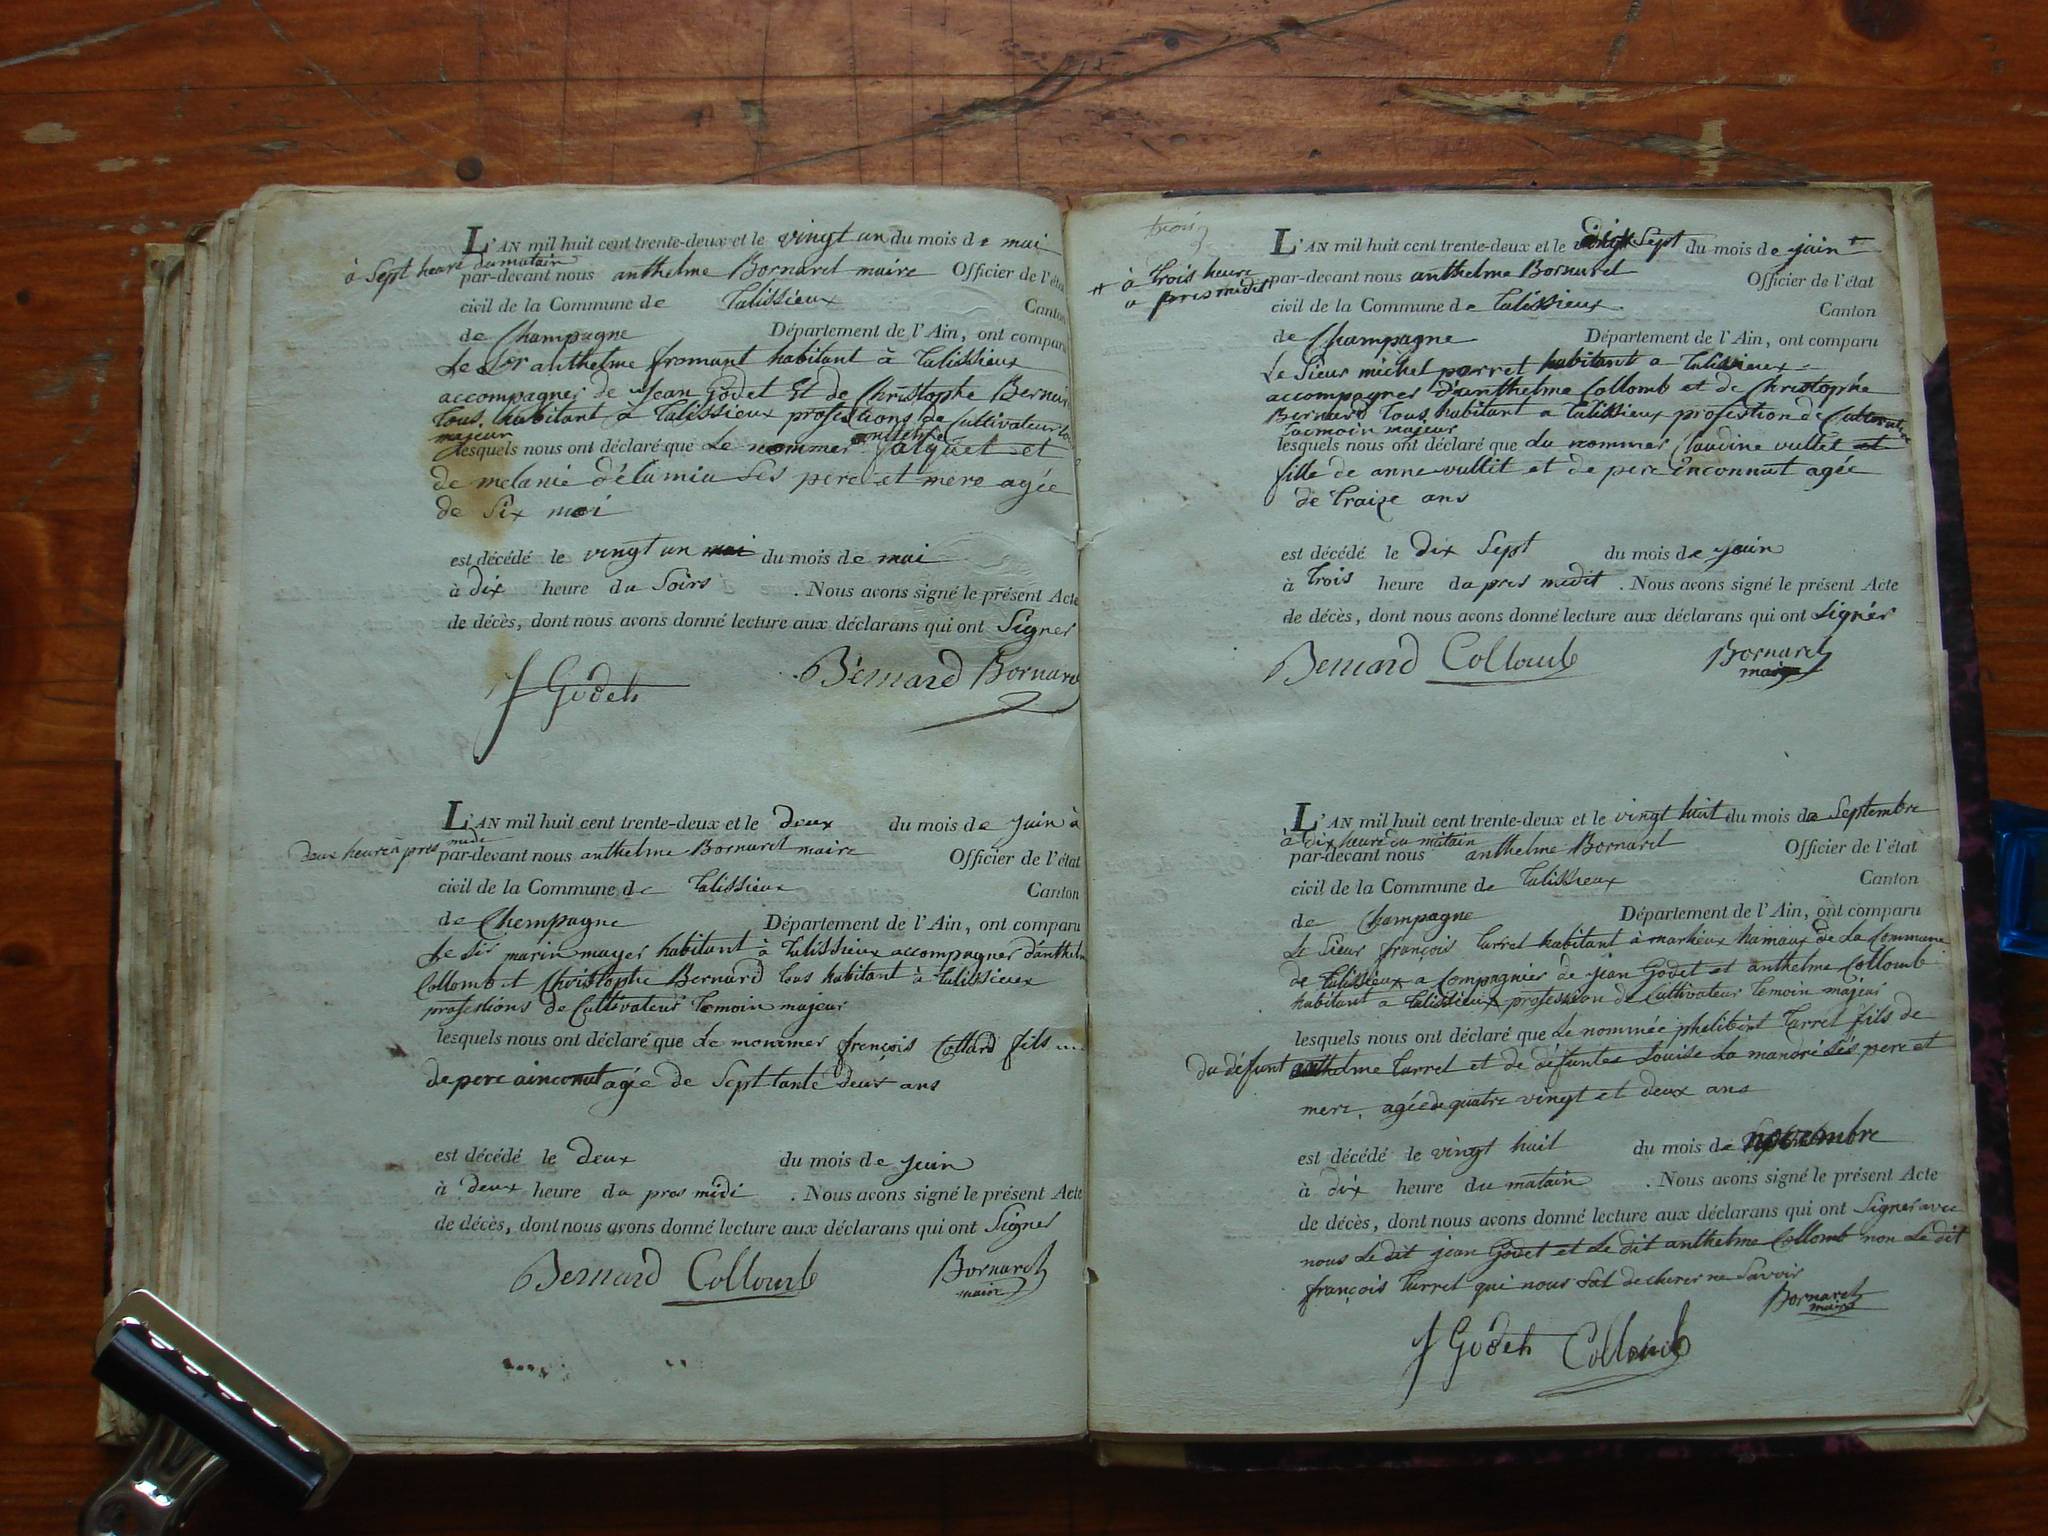 L'AN mil huit cent trente-deux et le vingt un du mois de mai
à Sept heure du matain
par-devant nous anthelme Bornaret maire Officier de l'état
civil de la Commune de talissieux Canton
de Champagne Département de l'Ain, ont comparu
Le Sr anthelme fromant habitant à talissieux
accompagner de Jean Godet Et de Christophe Bernard
tous habitant à talissieux profestions de Cultivateur
majeur
lesquels nous ont déclaré que Le nommer anthelme Jarquet et
de melanie Ses pere et mere agée
de Six moi
est décédé le vingt un mai du mois de mai
à dix heure du Soirs . Nous avons signé le présent Acte
de décès, dont nous avons donné lecture aux déclarans qui ont Signer
J Godet Bernard Bornaret
L'AN mil huit cent trente-deux et le deux du mois de juin à
deux heure à pres midi
par-devant nous anthelme Bornaret maire Officier de l'état
civil de la Commune de talissieux Canton
de Chempagne Département de l'Ain, ont comparu
Le Sir marin mayer habitant à talissieux accompagner d'anthelme
Collomb et Christophe Bernard tous habitant à talissieux
profestions de Cultivateur temoin majeur
lesquels nous ont déclaré que Le nommer françois Collard fils
de pere inconnut agée de Sept tante deux ans
est décédé le deux du mois de juin
à deux heure da pres midi . Nous avons signé le présent Acte
de décès, dont nous avons donné lecture aux déclarans qui ont Signer
Bernard Collomb Bornaret
maire
trois
L'AN mil huit cent trente-deux et le dix Sept du mois de juin
à trois heure
a pres medit
par-devant nous anthelme Bornaret Officier de l'état
civil de la Commune de talissieux Canton
de Champagne Département de l'Ain, ont comparu
Le Sieur michel perret habitant a talissieux
accompagner d'anthelme Collomb et de Christophe
Bernard tous habitant a talissieux profestion de Cultivateur
temoin majeur
lesquels nous ont déclaré que La nommer Claudine vullet et
fille de anne vullit et de pere Enconnut agée
de traize ans
est décédé le dix Sept du mois de juin
à trois heure da pres medit . Nous avons signé le présent Acte
de décès, dont nous avons donné lecture aux déclarans qui ont Signér
Bernard Collomb Bornaret
maire
L'AN mil huit cent trente-deux et le vingt huit du mois de Septembre
à dix heure du matain
par-devant nous anthelme Bornaret Officier de l'état
civil de la Commune de talissieux Canton
de Champagne Département de l'Ain, ont comparu
Le Sieur françois turrel habitant à marlieux hamaux de La Commune
de talissieux a Compagnier de jean Godet et anthelme Collomb
habitant a talissieux profession de Cultivateur temoin majeur
lesquels nous ont déclaré que Le nommée phelibert turrel fils de
du défunt anthelme turrel et de défuntes Louise La mandré Sés pere et
mere, agée de quatre vingt et deux ans
est décédé le vingt huit du mois de novembre
à dix heure du matain . Nous avons signé le présent Acte
de décès, dont nous avons donné lecture aux déclarans qui ont Signer avec
nous Le dit jean Godet et Le dit anthelme Collomb non Le dit
françois turrel qui nous declarer ne Savoir
Bornaret
maire
J Godet Collomb